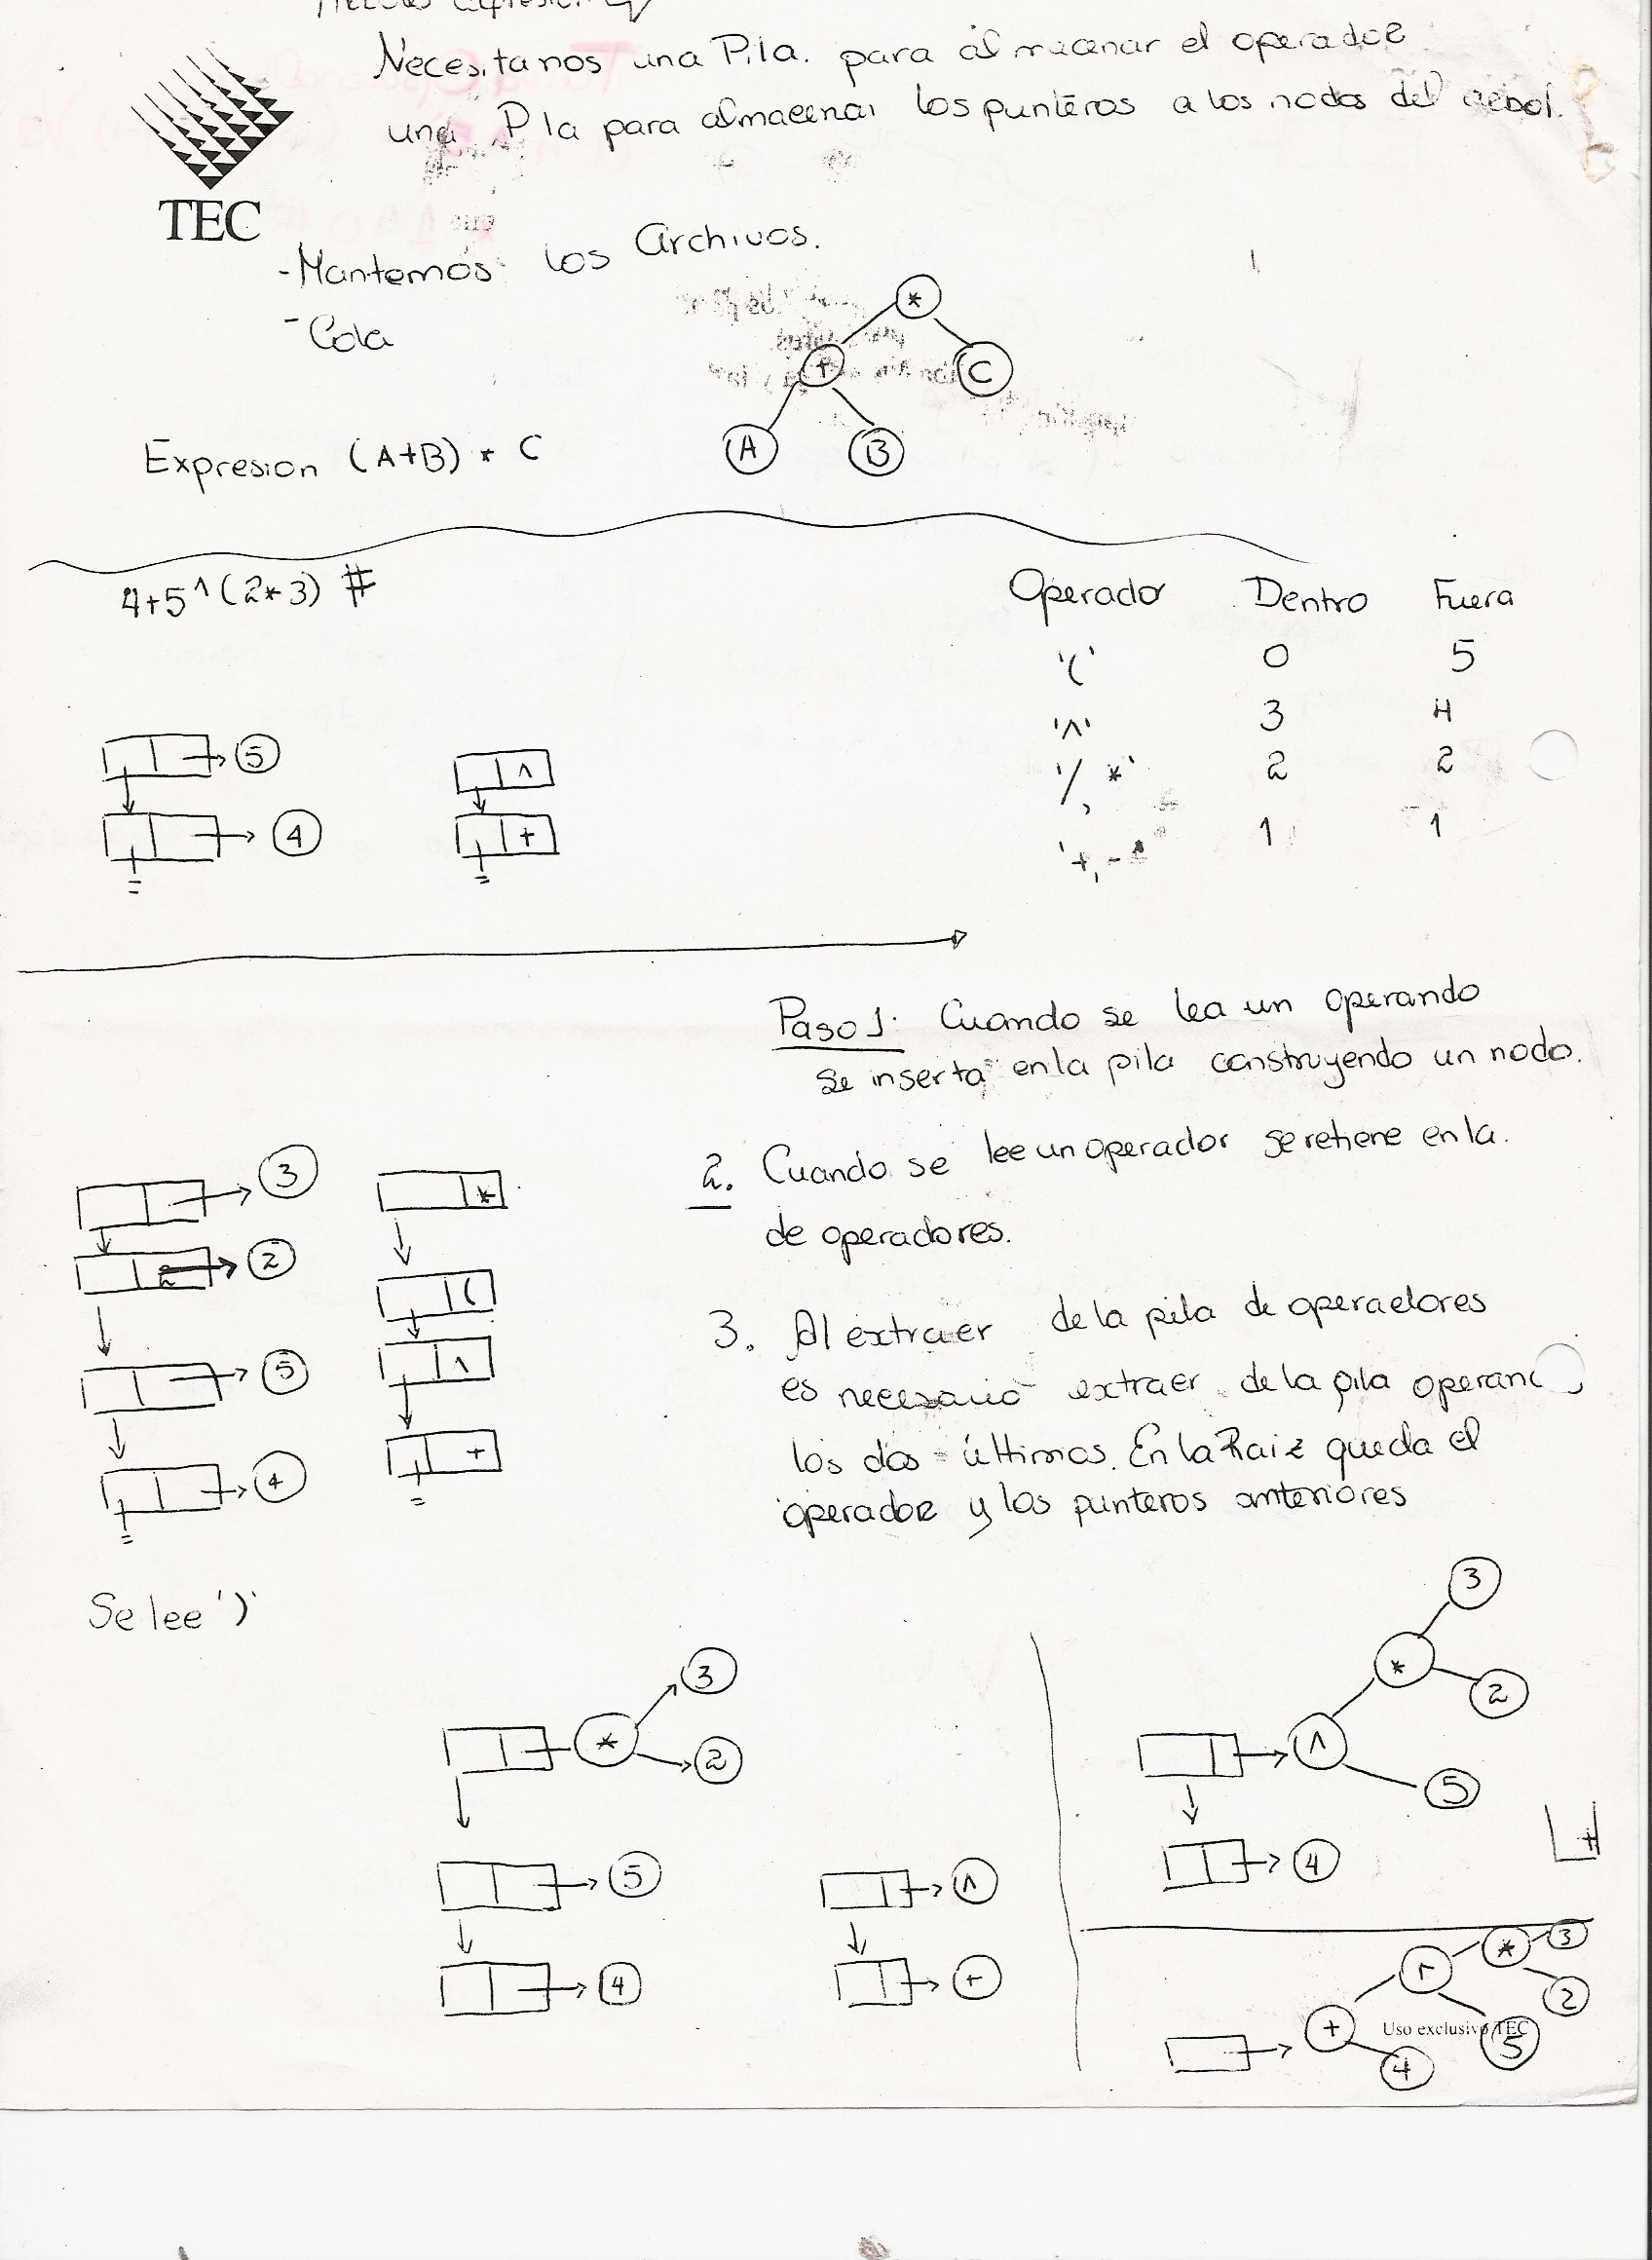 Necesitanos una Pila. para almacenar el operador
una Pila para almacenar los punteros a los nodos del arbol.
TEC
- Mantemos los Archivos.
- Cola
*
+ C
A B
Expresion (A+B) * C
4+5^(2*3) #
Operador Dentro Fuera
'(' 0 5
'^' 3 4
'/, *' 2 2
'+, -' 1 1
5 ^
4 +
Paso 1: Cuando se lea un operando
se inserta en la pila construyendo un nodo.
2. Cuando se lee un operador se retiene en la.
de operadores.
3 *
2 (
5 ^
4 +
3. Al extraer de la pila de operadores
es necesario extraer de la pila
los dos últimos. En la Raiz queda el
operador y los punteros anteriores
Se lee ')'
3
* 2
5 ^
4 +
3
*
2
^
5
4
+
* 3
2
+ 5
4
Uso exclusivo TEC